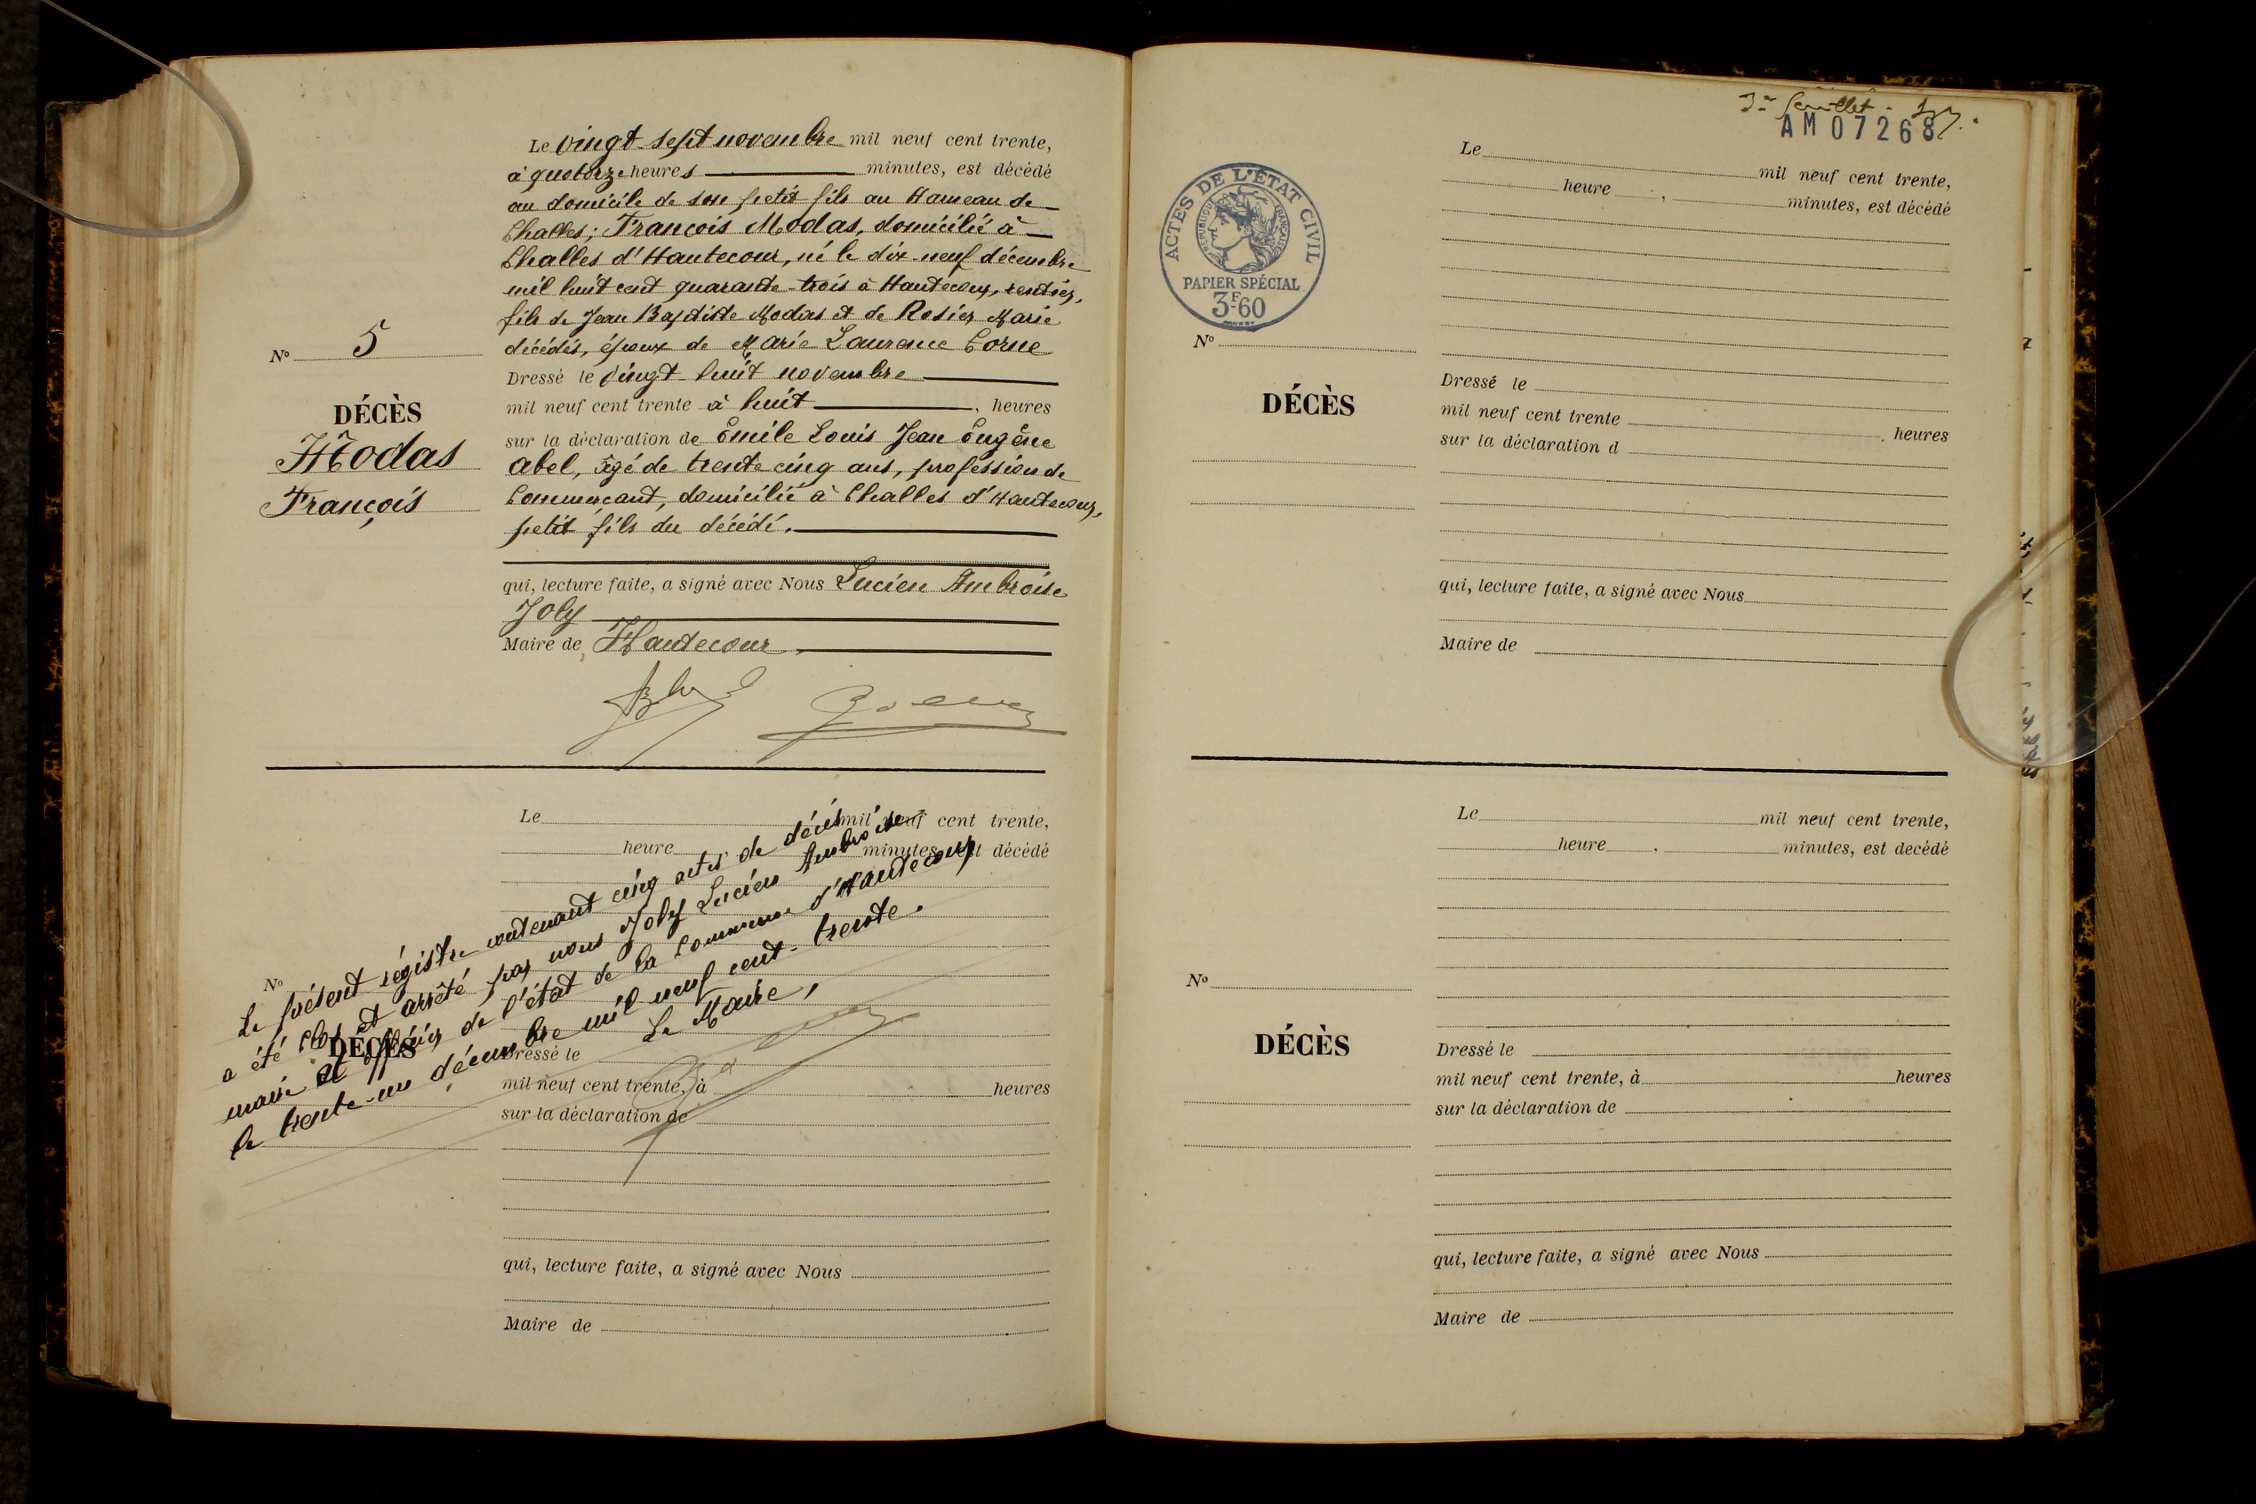 Le vingt-sept novembre mil neuf cent trente,
à quatorze heures minutes, est décédé
au domicile de son petit fils au Hameau de
Challes; François Modas, domicilié à
Challes d'Hautecour, né le dix-neuf décembre
mil huit cent quarante-trois à Hautecour, rentier,
fils de Jean Baptiste Modas et de Rosier Marie
décédés, époux de Marie Laurence Corne
Dressé le vingt-huit novembre
mil neuf cent trente à huit heures
sur la déclaration de Emile Louis Jean Eugène
Abel, âgé de trente cinq ans, profession de
Commerçant, domicilié à Challes d'Hautecour,
petit fils du décédé.
qui, lecture faite, a signé avec Nous Lucien Ambroise
Joly
Maire de Hautecour.
No 5
DÉCÈS
Modas
François
Le mil neuf cent trente,
heure minutes, est décédé
No
DÉCÈS
Dressé le
mil neuf cent trente, à heures
sur la déclaration de
qui, lecture faite, a signé avec Nous
Maire de
Le présent régistre contenant cinq actes de décès
a été clos et arrêté par nous Joly Lucien Ambroise
maire et officier de l'état de la Commune d'Hautecour
le trente-un décembre mil neuf cent-trente.
Le Maire,
3me feuillet
AM07268
ACTES DE L'ÉTAT CIVIL
RÉPUBLIQUE FRANÇAISE
PAPIER SPÉCIAL
3F60
Le mil neuf cent trente,
heure minutes, est décédé
No
DÉCÈS
Dressé le
mil neuf cent trente heures
sur la déclaration d
qui, lecture faite, a signé avec Nous
Maire de
Le mil neuf cent trente,
heure minutes, est decédé
No
DÉCÈS
Dressé le
mil neuf cent trente, à heures
sur la déclaration de
qui, lecture faite, a signé avec Nous
Maire de